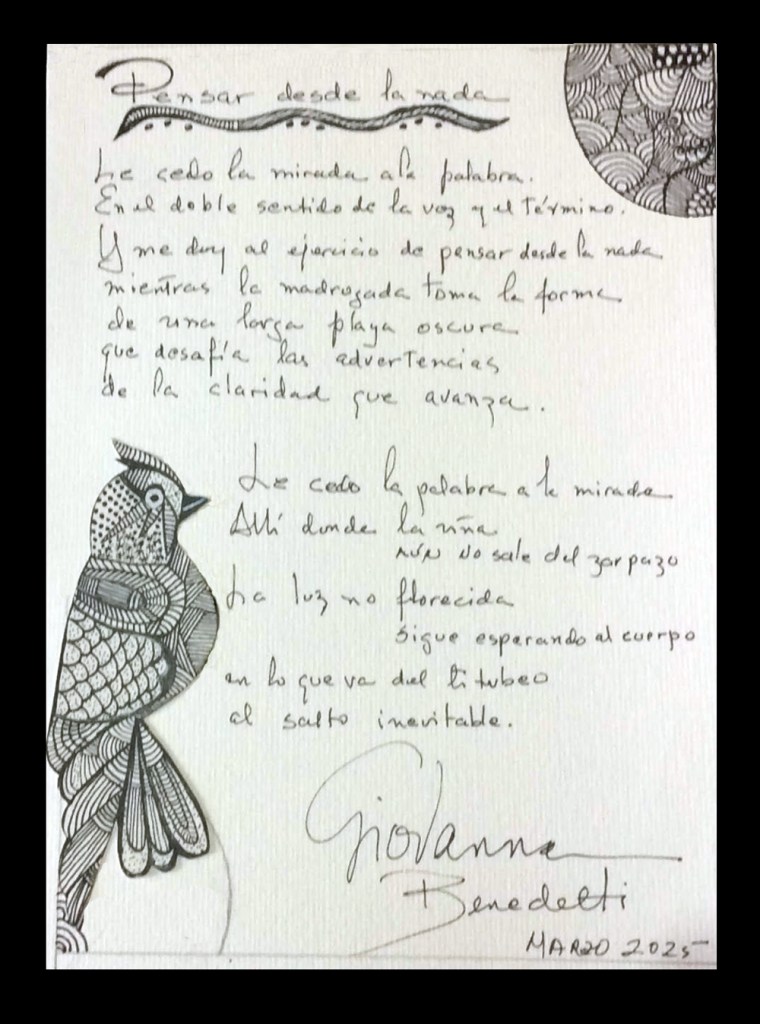 Pensar desde la nada
Le cedo la mirada a la palabra.
En el doble sentido de la voz y el término.
Y me doy al ejercicio de pensar desde la nada
mientras la madrugada toma la forma
de una larga playa oscura
que desafía las advertencias
de la claridad que avanza.
Le cedo la palabra a la mirada
Allí donde la uña
AÚN NO sale del zarpazo
La luz no florecida
sigue esperando al cuerpo
en lo que va del titubeo
al salto inevitable.
Giovanna
Benedetti
MARZO 2025